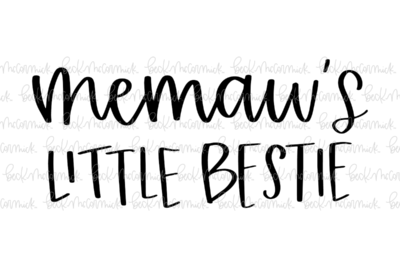 memaw's
LITTLE BESTIE